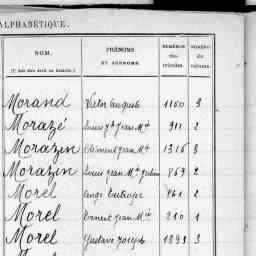 ALPHABÉTIQUE.
NOM. PRÉNOMS ET SURNOMS. NUMÉROS matricules. NUMÉRO du volume.
Morand Victor Auguste 1160 3
Morazé Louis Jean Mie 911 2
Morazin Clément Jean Mie 1316 3
Morazin Louis Jean Mie 869 2
Morel Ange 761 2
Morel Ernest Jean Mie 210 1
Morel Gustave Joseph 1893 3